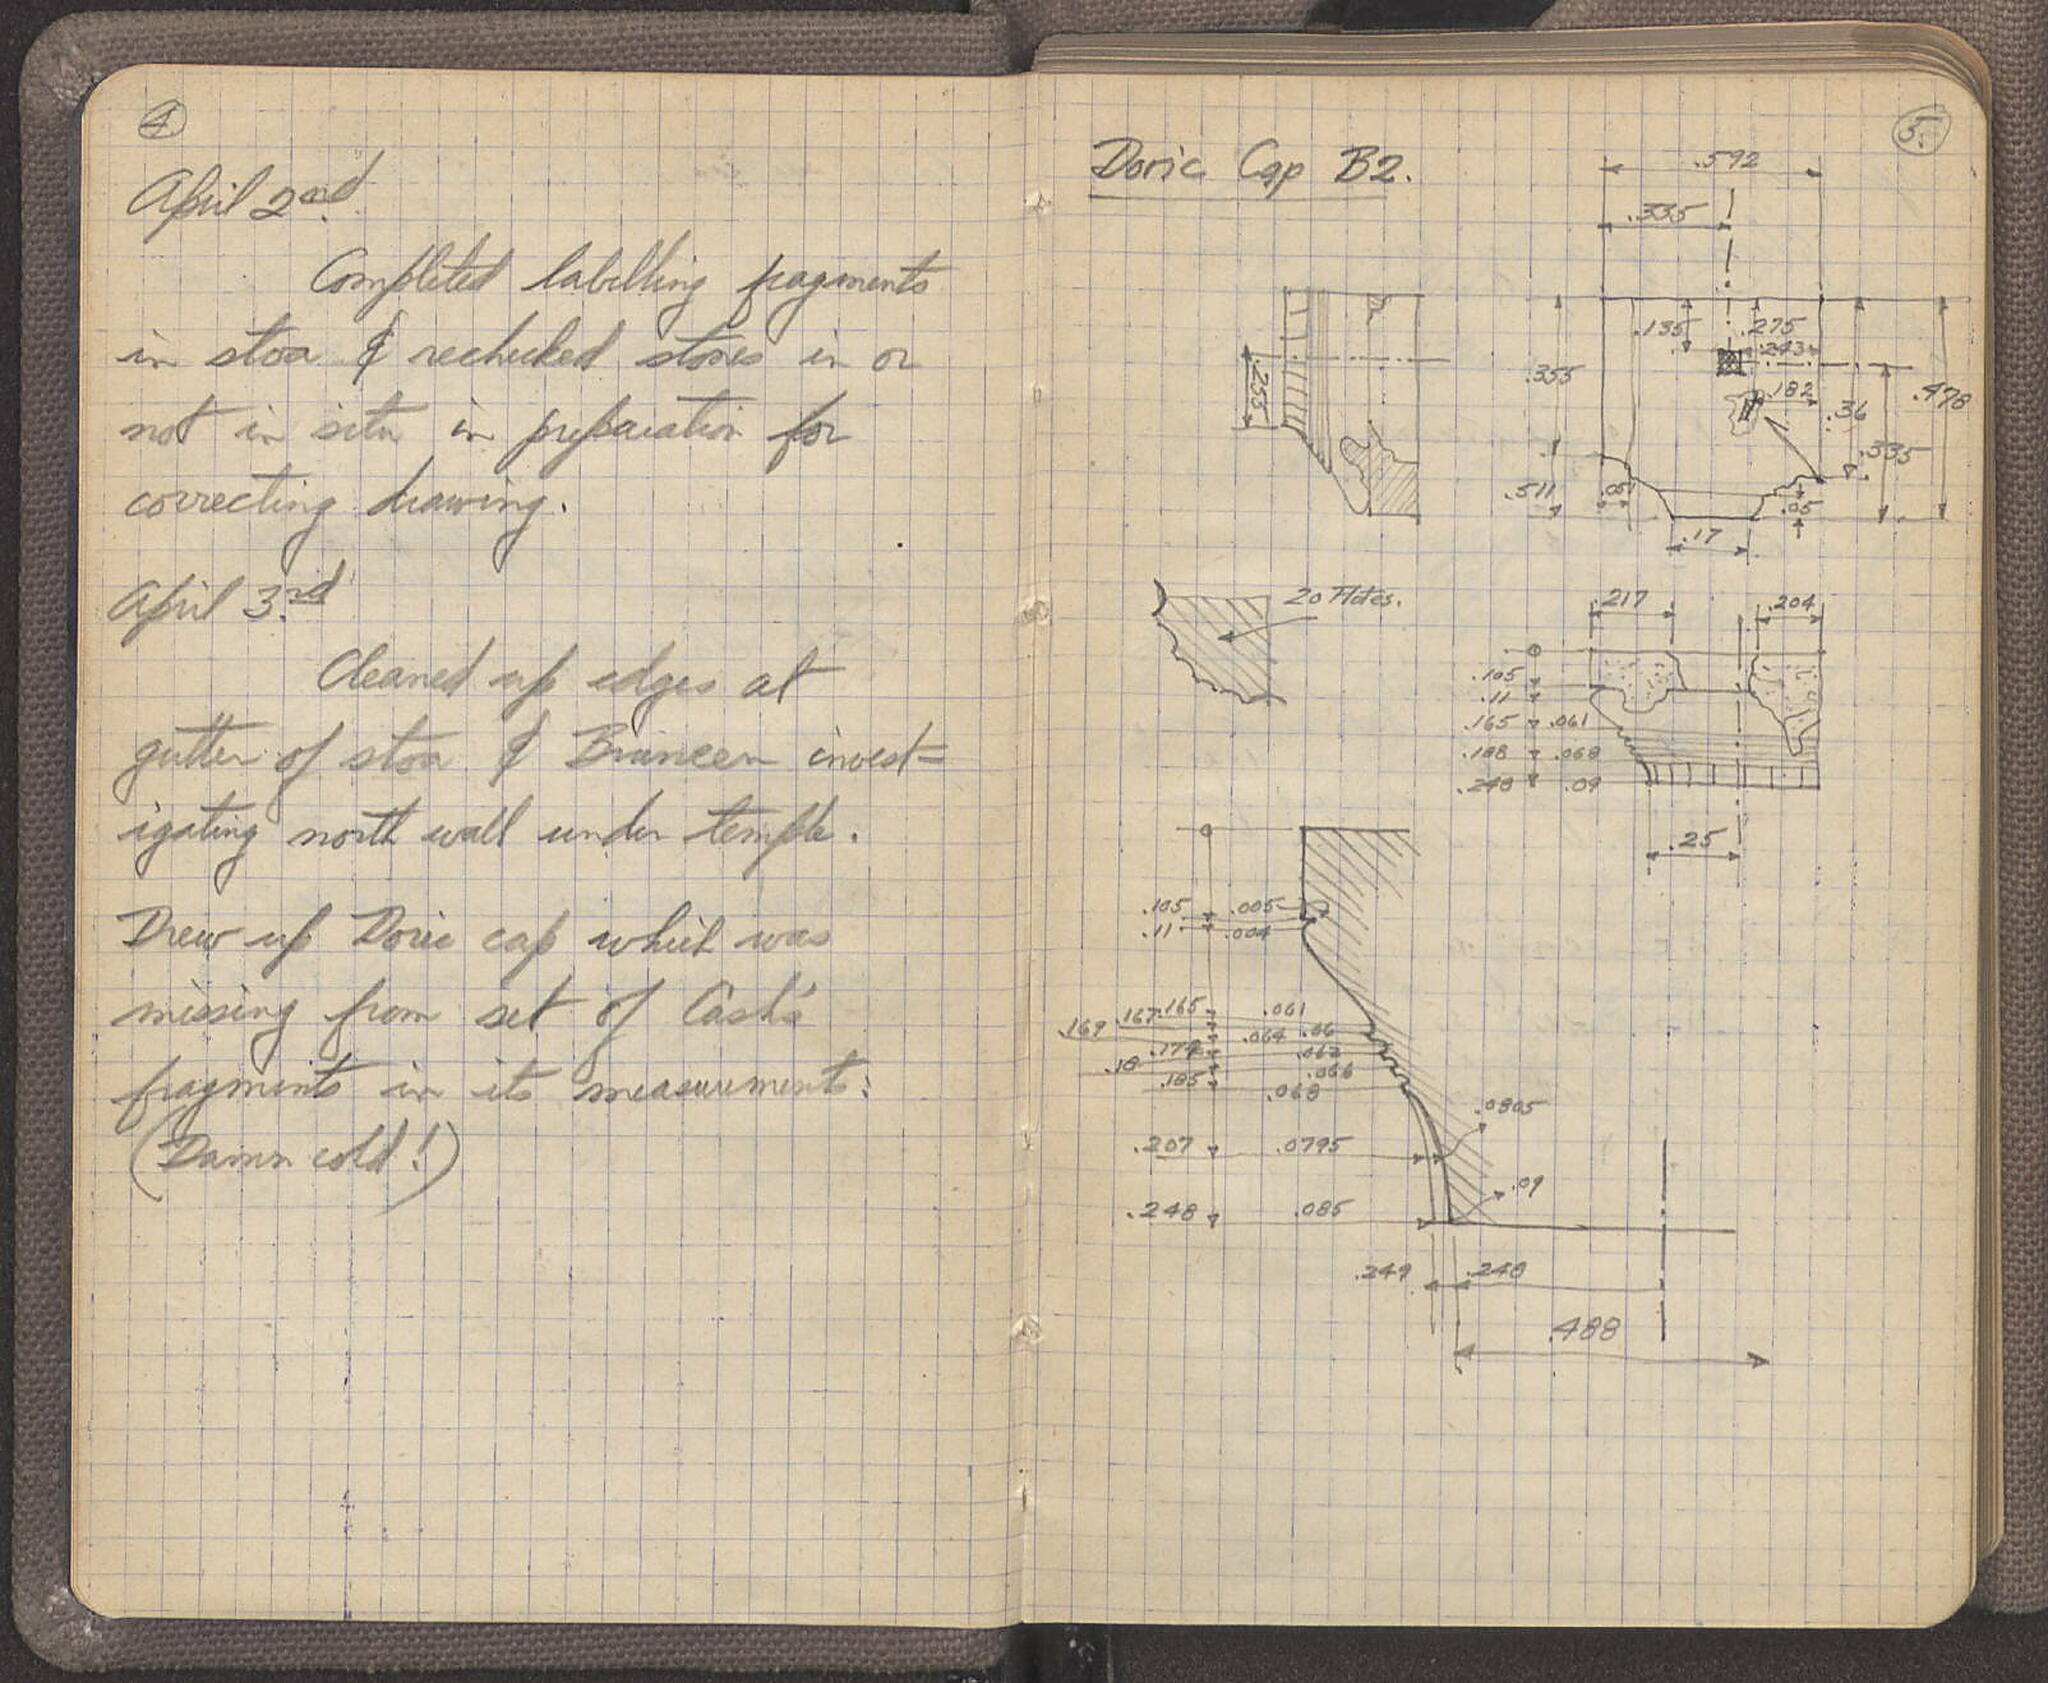 4
April 2nd
Completed labelling fragments
in stoa & rechecked stones in or
not in situ in preparation for
correcting drawing.
April 3rd
Cleaned up edges at
gutter of stoa & Bruneer invest=
igating north wall under temple.
Drew up Doric cap which was
missing from set of Cash's
fragments in its measurements.
(Damn cold!)
5.
Doric Cap B2.
.592
.335
.135 .275
.243
.255
.355
.182
.36
.478
.335
.511
.051
.05
.17
20 Flutes.
.217 .204
.105
.11
.165 .061
.188 .068
.248 .09
.25
.105 .005
.11 .004
.165 .061
.167
.169 .064 .06
.174 .062
.18 .066
.185 .068
.0805
.207 .0795
.09
.248 .085
.249 .248
.488